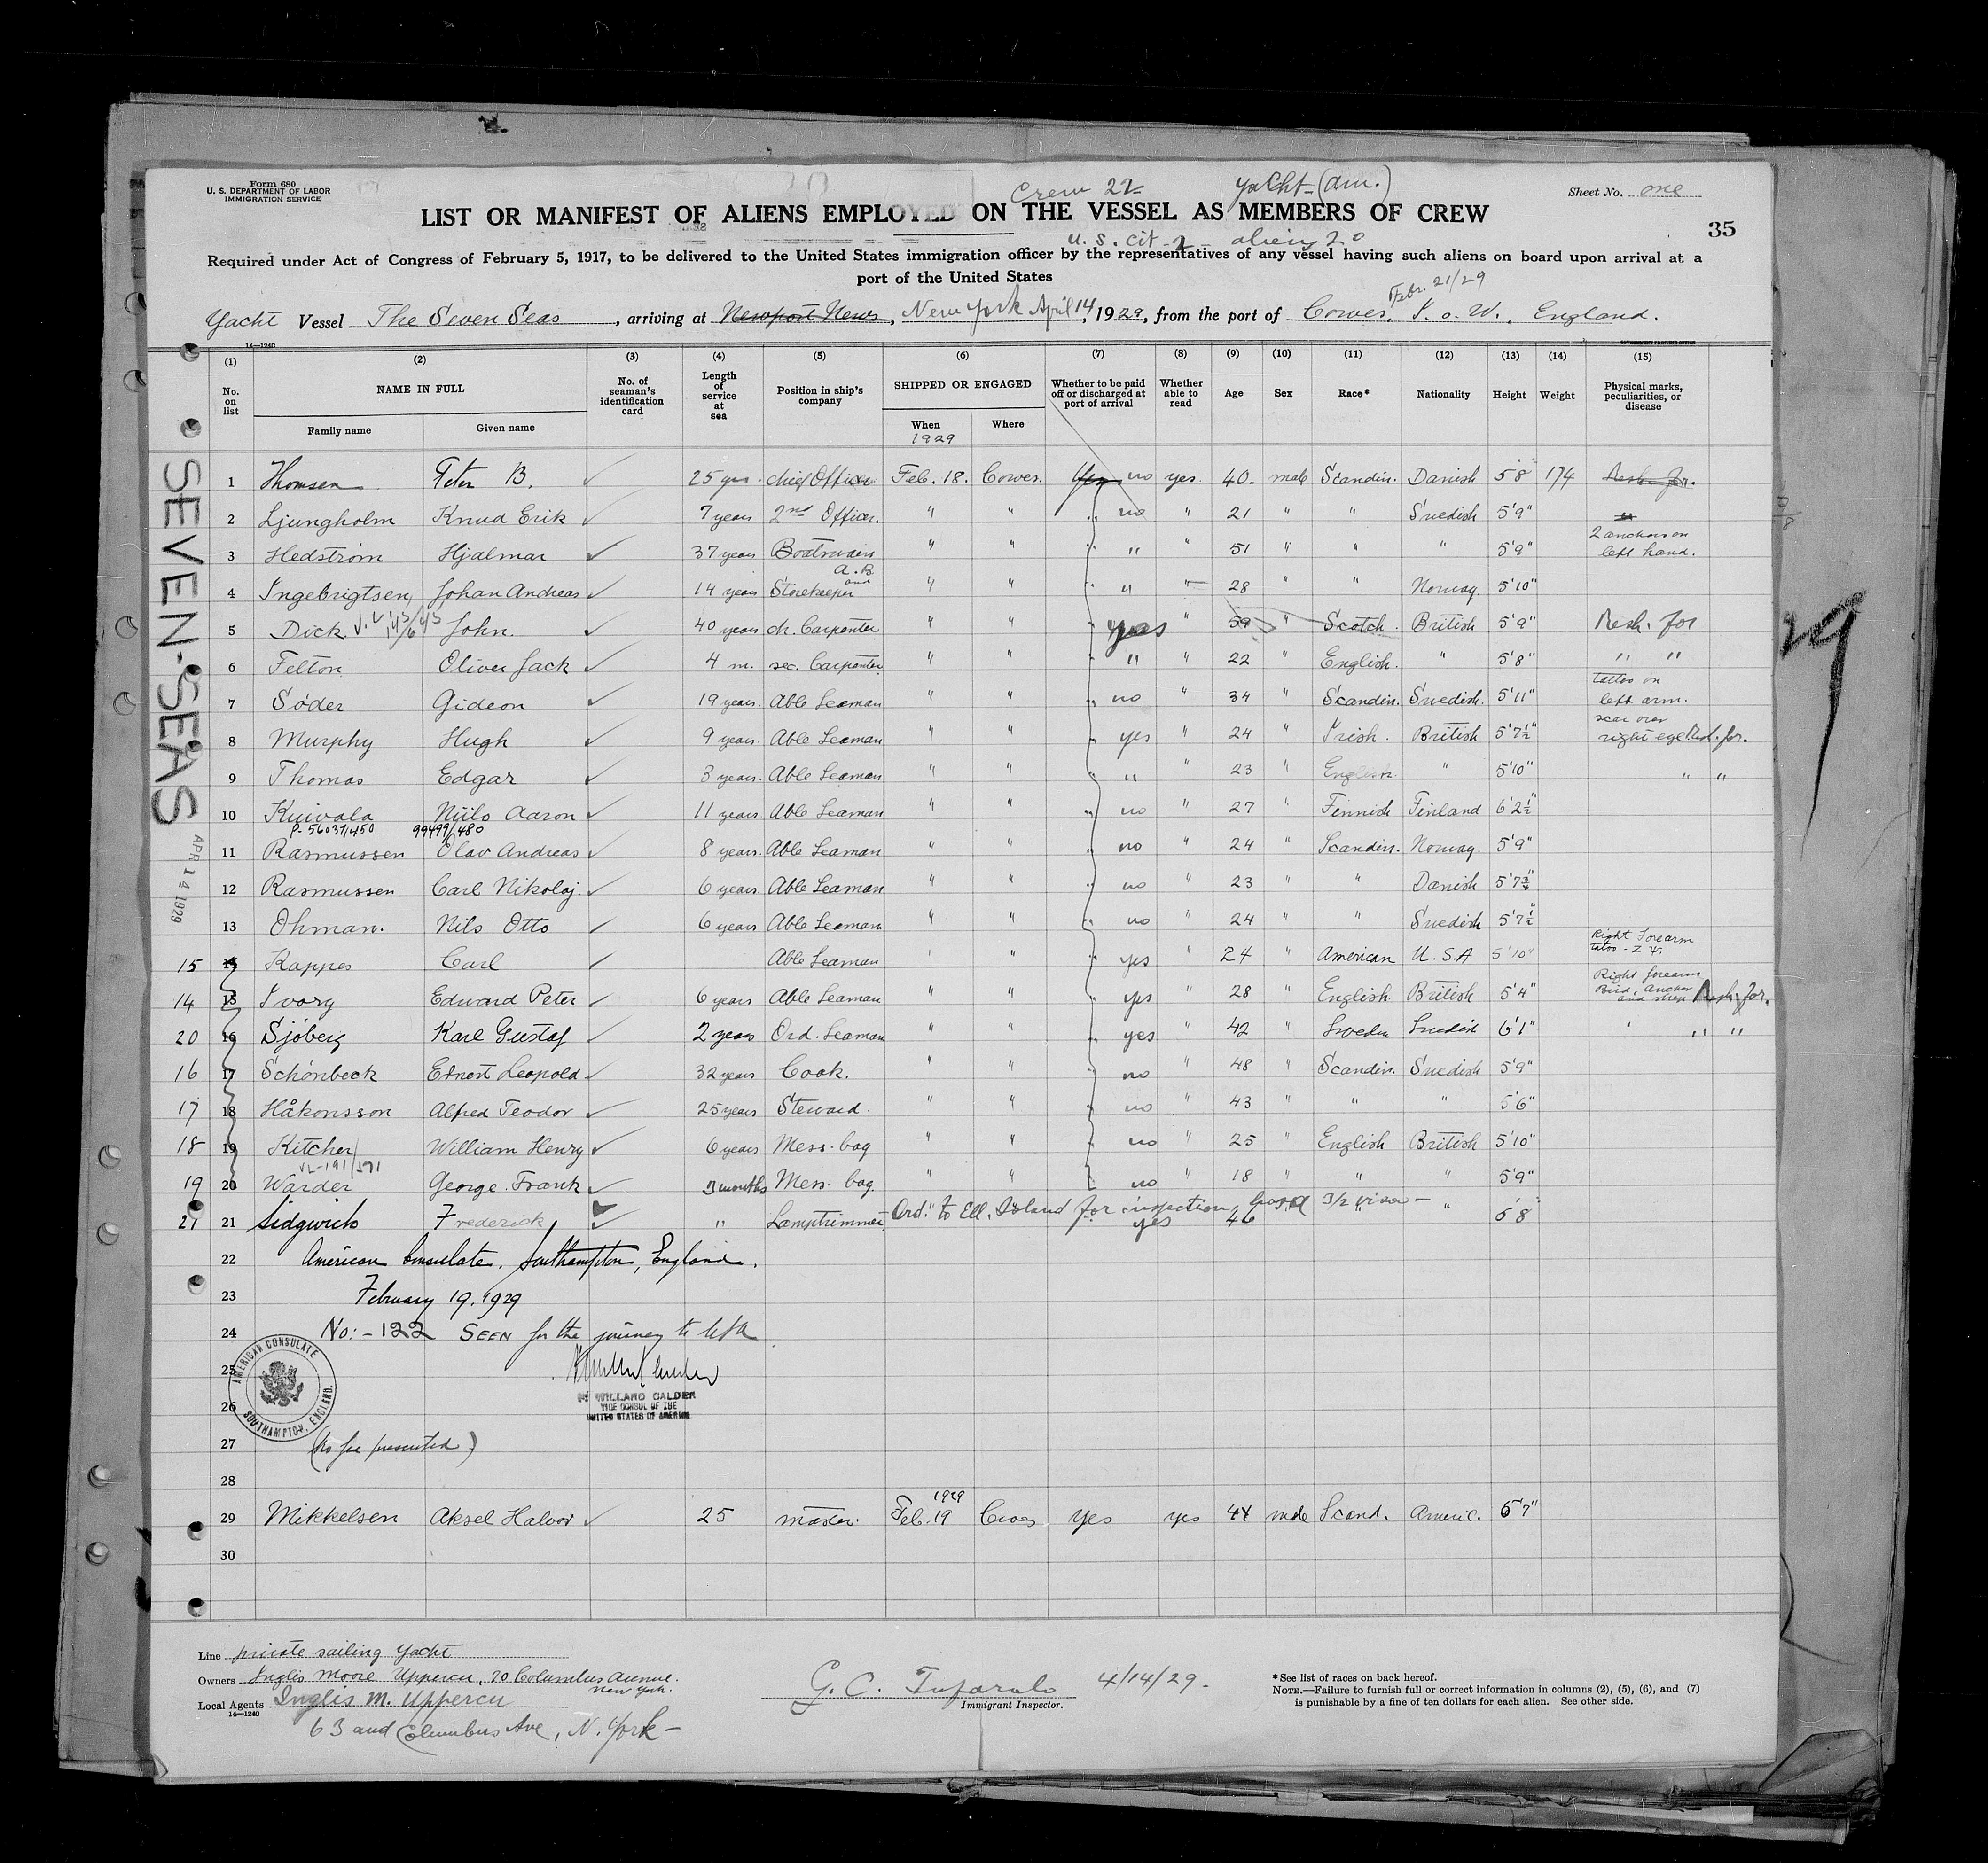 Form 680
U. S. DEPARTMENT OF LABOR
IMMIGRATION SERVICE
Crew 22
Yacht (am.)
Sheet No. one
LIST OR MANIFEST OF ALIENS EMPLOYED ON THE VESSEL AS MEMBERS OF CREW
35
U. S. cit - 2 - aliens 20
Required under Act of Congress of February 5, 1917, to be delivered to the United States immigration officer by the representatives of any vessel having such aliens on board upon arrival at a
port of the United States
Febr. 21/29
Yacht Vessel The Seven Seas, arriving at Newport News, New York April 14, 1929, from the port of Cowes, I. o. W., England.
14—1240
(1) (2) (3) (4) (5) (6) (7) (8) (9) (10) (11) (12) (13) (14) (15)
No. on list
NAME IN FULL
Family name
Given name
No. of seaman's identification card
Length of service at sea
Position in ship's company
SHIPPED OR ENGAGED
When 1929
Where
Whether to be paid off or discharged at port of arrival
Whether able to read
Age
Sex
Race*
Nationality
Height
Weight
Physical marks, peculiarities, or disease
SEVEN-SEAS
APR 14 1929
1 Thomsen Peter B. 25 yrs. chief Officer Feb. 18. Cowes. Yes no yes. 40. male Scandin. Danish 5'8 174 Resh. for.
2 Ljungholm Knud Erik 7 years 2nd Officer. " " " no " 21 " " Swedish 5'9"
3 Hedström Hjalmar 37 years Boatswain " " " " " 51 " " " 5'9" 2 anchors on left hand.
4 Ingebrigtsen Johan Andreas 14 years A.B. and Storekeeper " " " " " 28 " " Norweg. 5'10"
5 Dick John. 40 years ch. Carpenter " " " yes " 59 " Scotch. British 5'9" Resh. for
6 Felton Oliver Jack 4 m. sec. Carpenter " " " " " 22 " English. " 5'8" " "
7 Söder Gideon 19 years. Able Seaman " " " no " 34 " Scandin. Swedish. 5'11" tattoo on left arm.
8 Murphy Hugh 9 years. Able Seaman " " " yes " 24 " Irish. British 5'7½" scar over right eye Resh. for.
9 Thomas Edgar 3 years. Able Seaman " " " " " 23 " English. " 5'10" " "
10 Kuivala Niilo Aaron 11 years Able Seaman " " " no " 27 " Finnish Finland 6'2½"
P-56037/450 99499/480
11 Rasmussen Olav Andreas 8 years. Able Seaman " " " no " 24 " Scandin. Norweg. 5'9"
12 Rasmussen Carl Nikolaj. 6 years. Able Seaman " " " no " 23 " " Danish 5'7¾"
13 Ohman. Nils Otto 6 years Able Seaman " " " no " 24 " " Swedish 5'7½"
15 14 Kappes Carl Able Seaman " " " yes " 24 " American U.S.A 5'10" Right Forearm tatoo -
14 15 Ivory Edward Peter 6 years Able Seaman " " " yes " 28 " English British 5'4" Right forearm Bird, anchor and ship Resh. for.
20 16 Sjöberg Karl Gustaf 2 years Ord. Seaman " " " yes " 42 " Sweden Swedish 6'1" " " "
16 17 Schönbeck Ernest Leopold 32 years Cook. " " " no " 48 " Scandin. Swedish 5'9"
17 18 Håkonsson Alfred Teodor 25 years Steward. " " " no " 43 " " " 5'6"
18 19 Kitcher William Henry 6 years Mess-boy " " " no " 25 " English British 5'10"
VL-191/591
19 20 Warder George. Frank 3 months Mess-boy. " " " no " 18 " " " 5'9"
21 21 Sidgwick Frederick " Lamptrimmer Ord. to Ell. Island for inspection, 3/2 visa — yes 46 " 5'8"
22 American Consulate, Southampton, England.
23 February 19, 1929
24 No:-122 SEEN for the journey to USA
25
AMERICAN CONSULATE SOUTHAMPTON, ENGLAND.
WILLARD CALDER
VICE CONSUL OF THE
UNITED STATES OF AMERICA
26
27 (No fee presented)
28
29 Mikkelsen Aksel Halvor 25 master. 1929 Feb. 19 Cowes Yes yes 44 male Scand. Americ. 5'7"
30
Line private sailing Yacht
Owners Inglis Moore Uppercu, 20 Columbus Avenue. New York.
Local Agents Inglis M. Uppercu
14—1240
63 and Columbus Ave, N. York —
G. C. Tufarolo 4/14/29.
Immigrant Inspector.
*See list of races on back hereof.
NOTE.—Failure to furnish full or correct information in columns (2), (5), (6), and (7)
is punishable by a fine of ten dollars for each alien. See other side.